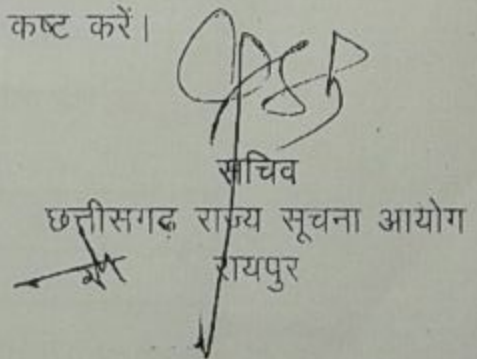 कष्ट करें।
सचिव
छत्तीसगढ़ राज्य सूचना आयोग
रायपुर